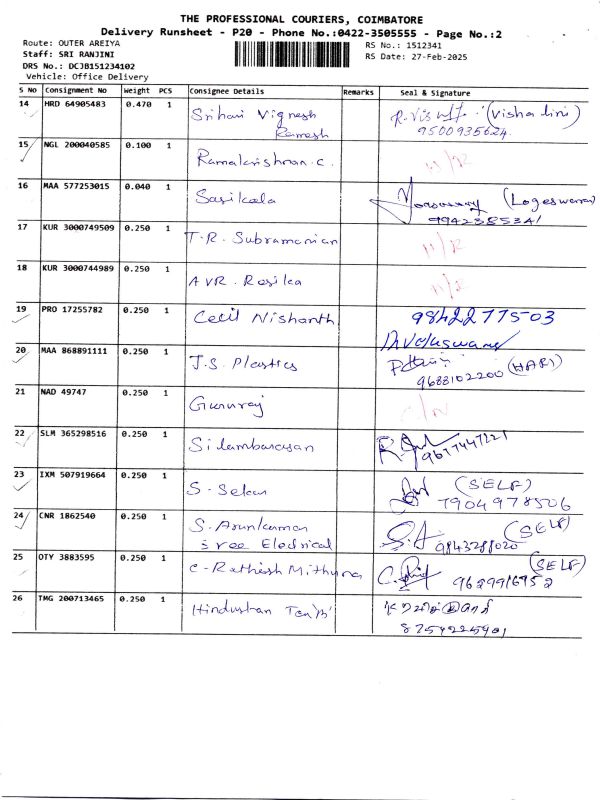 THE PROFESSIONAL COURIERS, COIMBATORE
Delivery Runsheet - P20 - Phone No.:0422-3505555 - Page No.:2
Route: OUTER AREIYA
RS No.: 1512341
Staff: SRI RANJINI
RS Date: 27-Feb-2025
DRS No.: DCJB151234102
Vehicle: Office Delivery
S No Consignment No Weight PCS Consignee Details Remarks Seal & Signature
14 HRD 64905483 0.470 1 Srihari Vignesh (Vishalini)
Ramesh 9500935624
15 NGL 200040585 0.100 1 Ramakrishnan.C. N/R
16 MAA 577253015 0.040 1 Sasikala (Logeswaran)
9942385341
17 KUR 3000749509 0.250 1 T.R. Subramanian N/R
18 KUR 3000744989 0.250 1 AVR. Rasika N/R
19 PRO 17255782 0.250 1 Cecil Nishanth 9842277503
20 MAA 868891111 0.250 1 J.S. Plastics (HARI)
9688102200
21 NAD 49747 0.250 1 Gururaj
22 SLM 365298516 0.250 1 Silambarasan
23 IXM 507919664 0.250 1 S. Sekar (SELF)
7904978506
24 CNR 1862540 0.250 1 S. Arunkumar S.A (SELF)
Sree Electrical 9843288020
25 OTY 3883595 0.250 1 C. Rathish Mithuna (SELF)
9629916952
26 TMG 200713465 0.250 1 Hindustan
8754225901